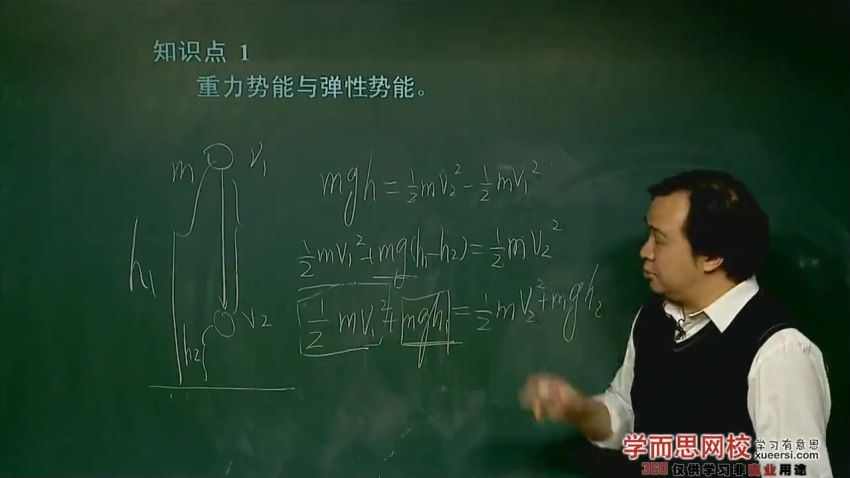 知识点 1
重力势能与弹性势能。
m v₁
h₁
v₂
h₂
mgh = ½mv₂² - ½mv₁²
½mv₁² + mg(h₁-h₂) = ½mv₂²
½mv₁² + mgh₁ = ½mv₂² + mgh₂
学而思网校 学习有意思
xueersi.com
360 仅供学习非商业用途